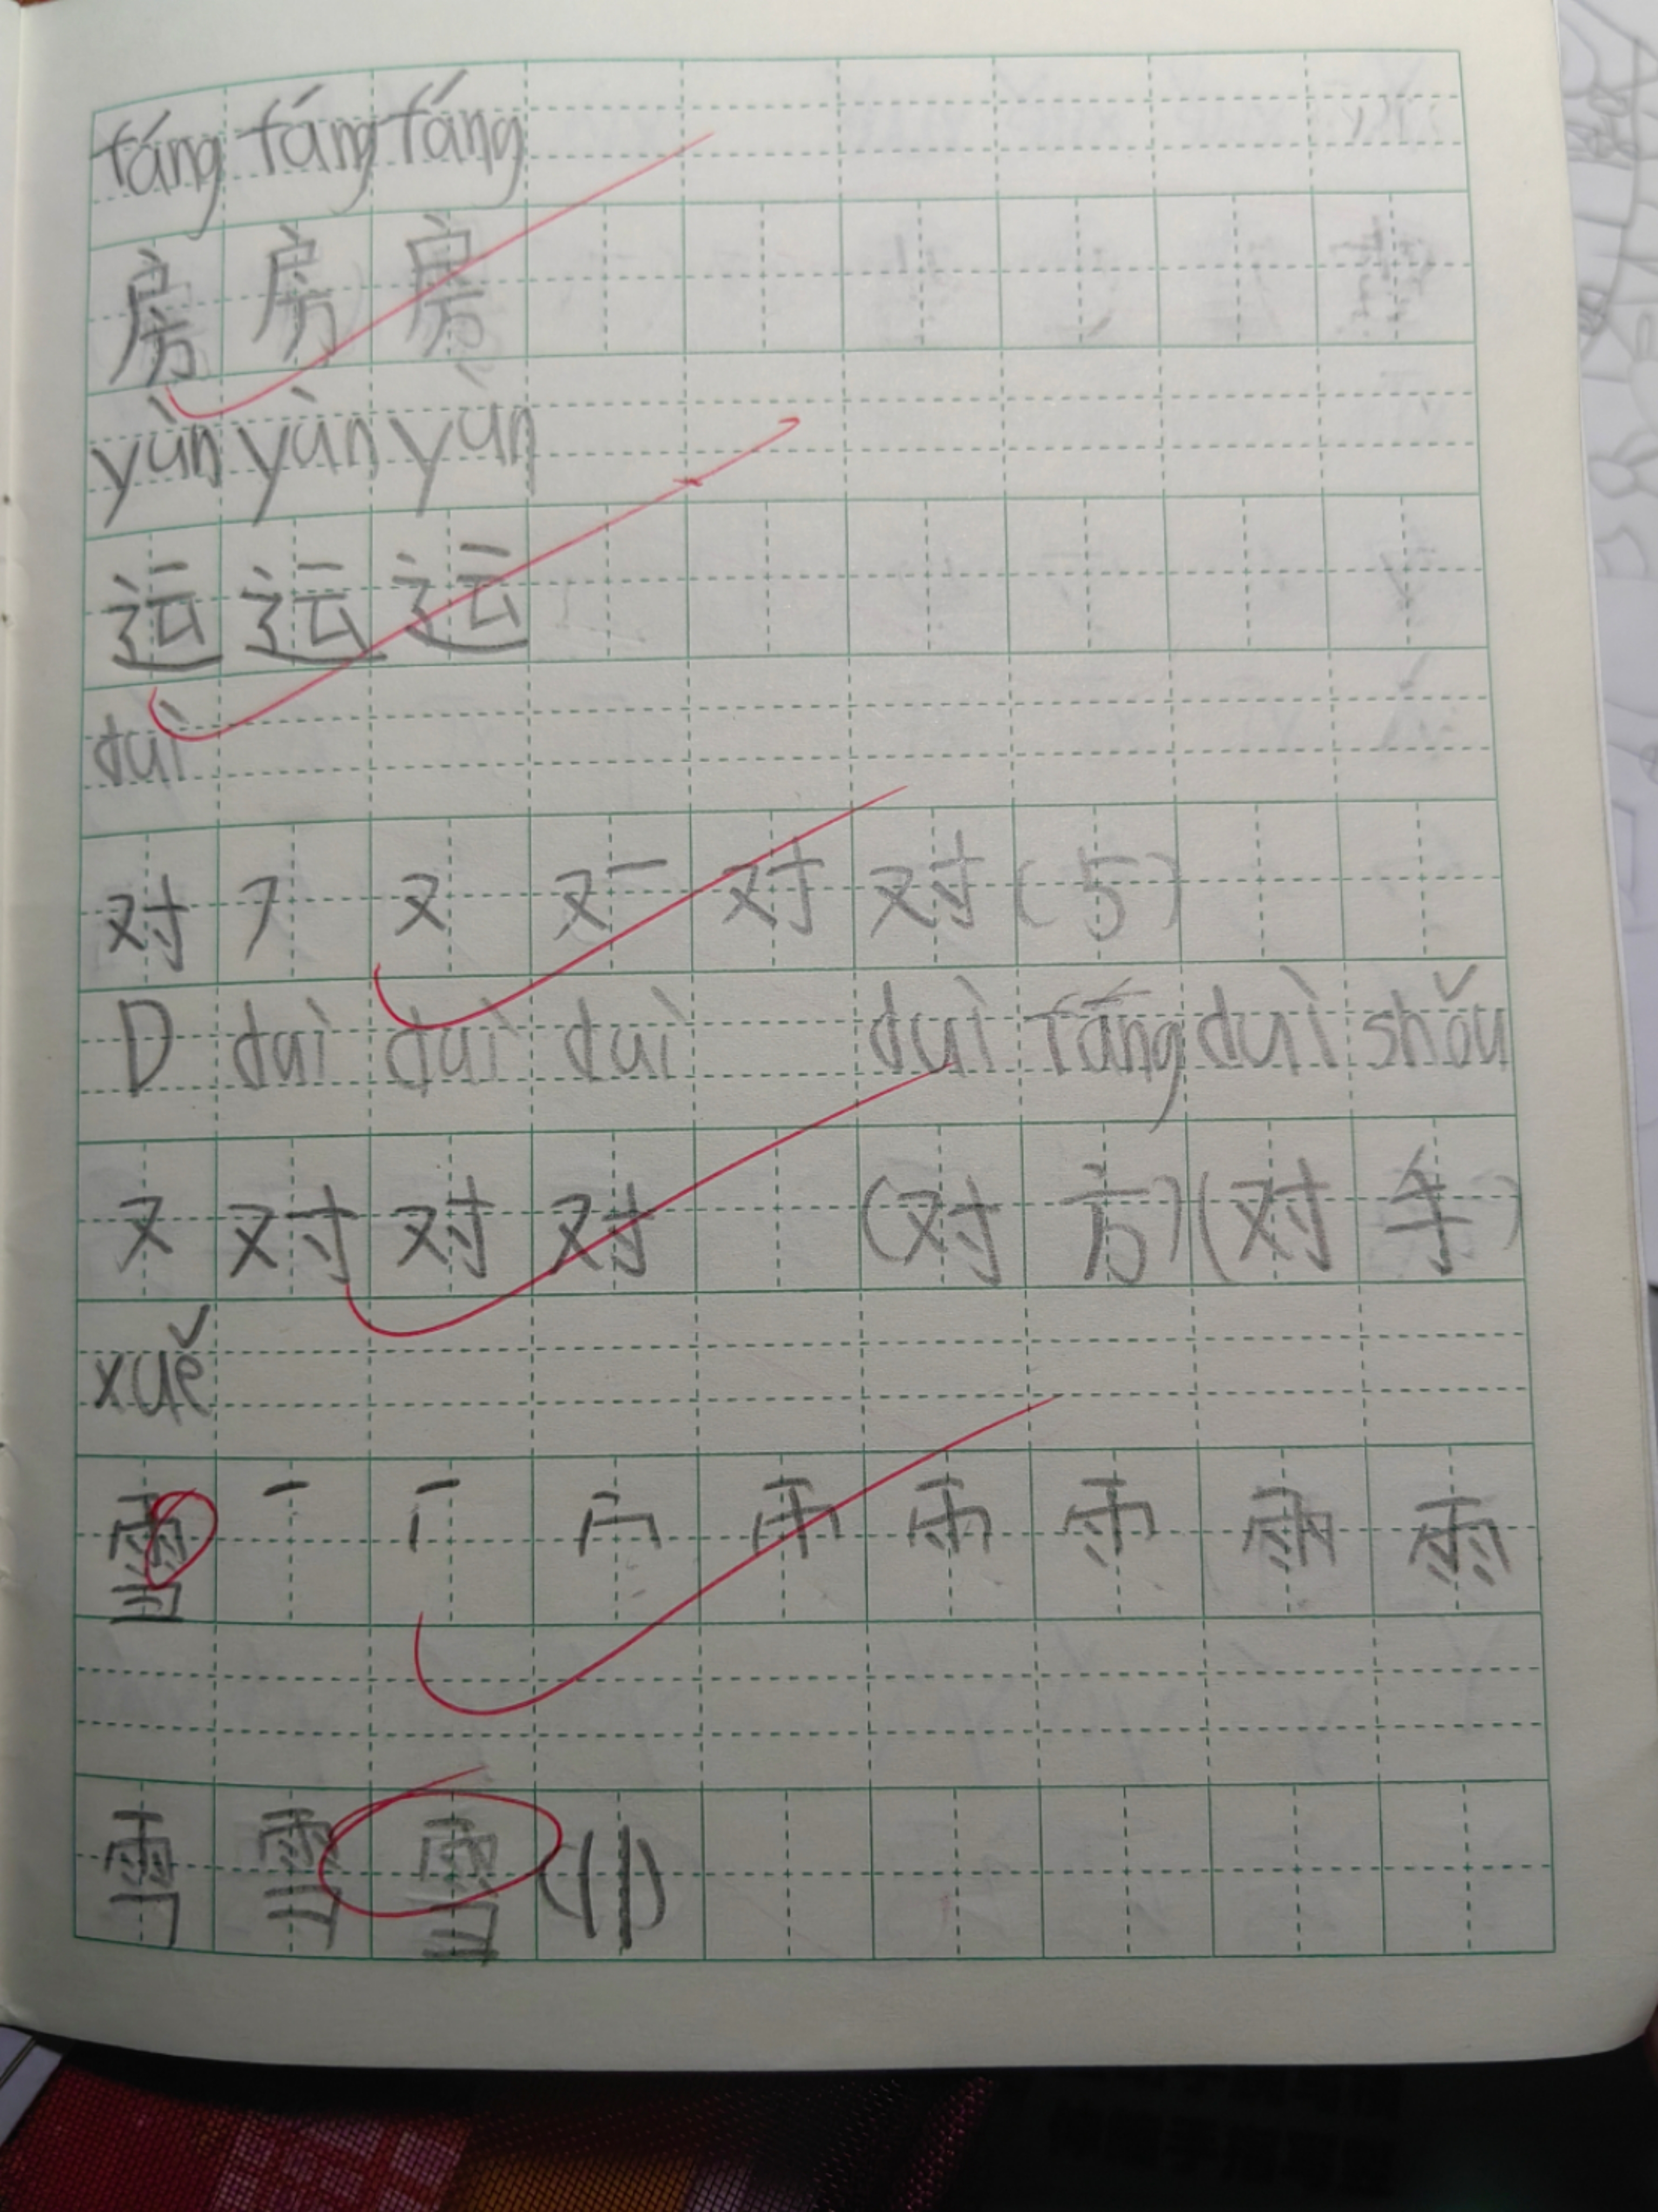 fáng fáng fáng
房 房 房
yùn yùn yùn
运 运 运
duì
对 フ 又 对 对 (5)
D duì duì duì duì fāng duì shǒu
又 对 对 对 (对 方) (对 手)
xuě
雪 一 雨 雨
雪 雪 雪 (11)